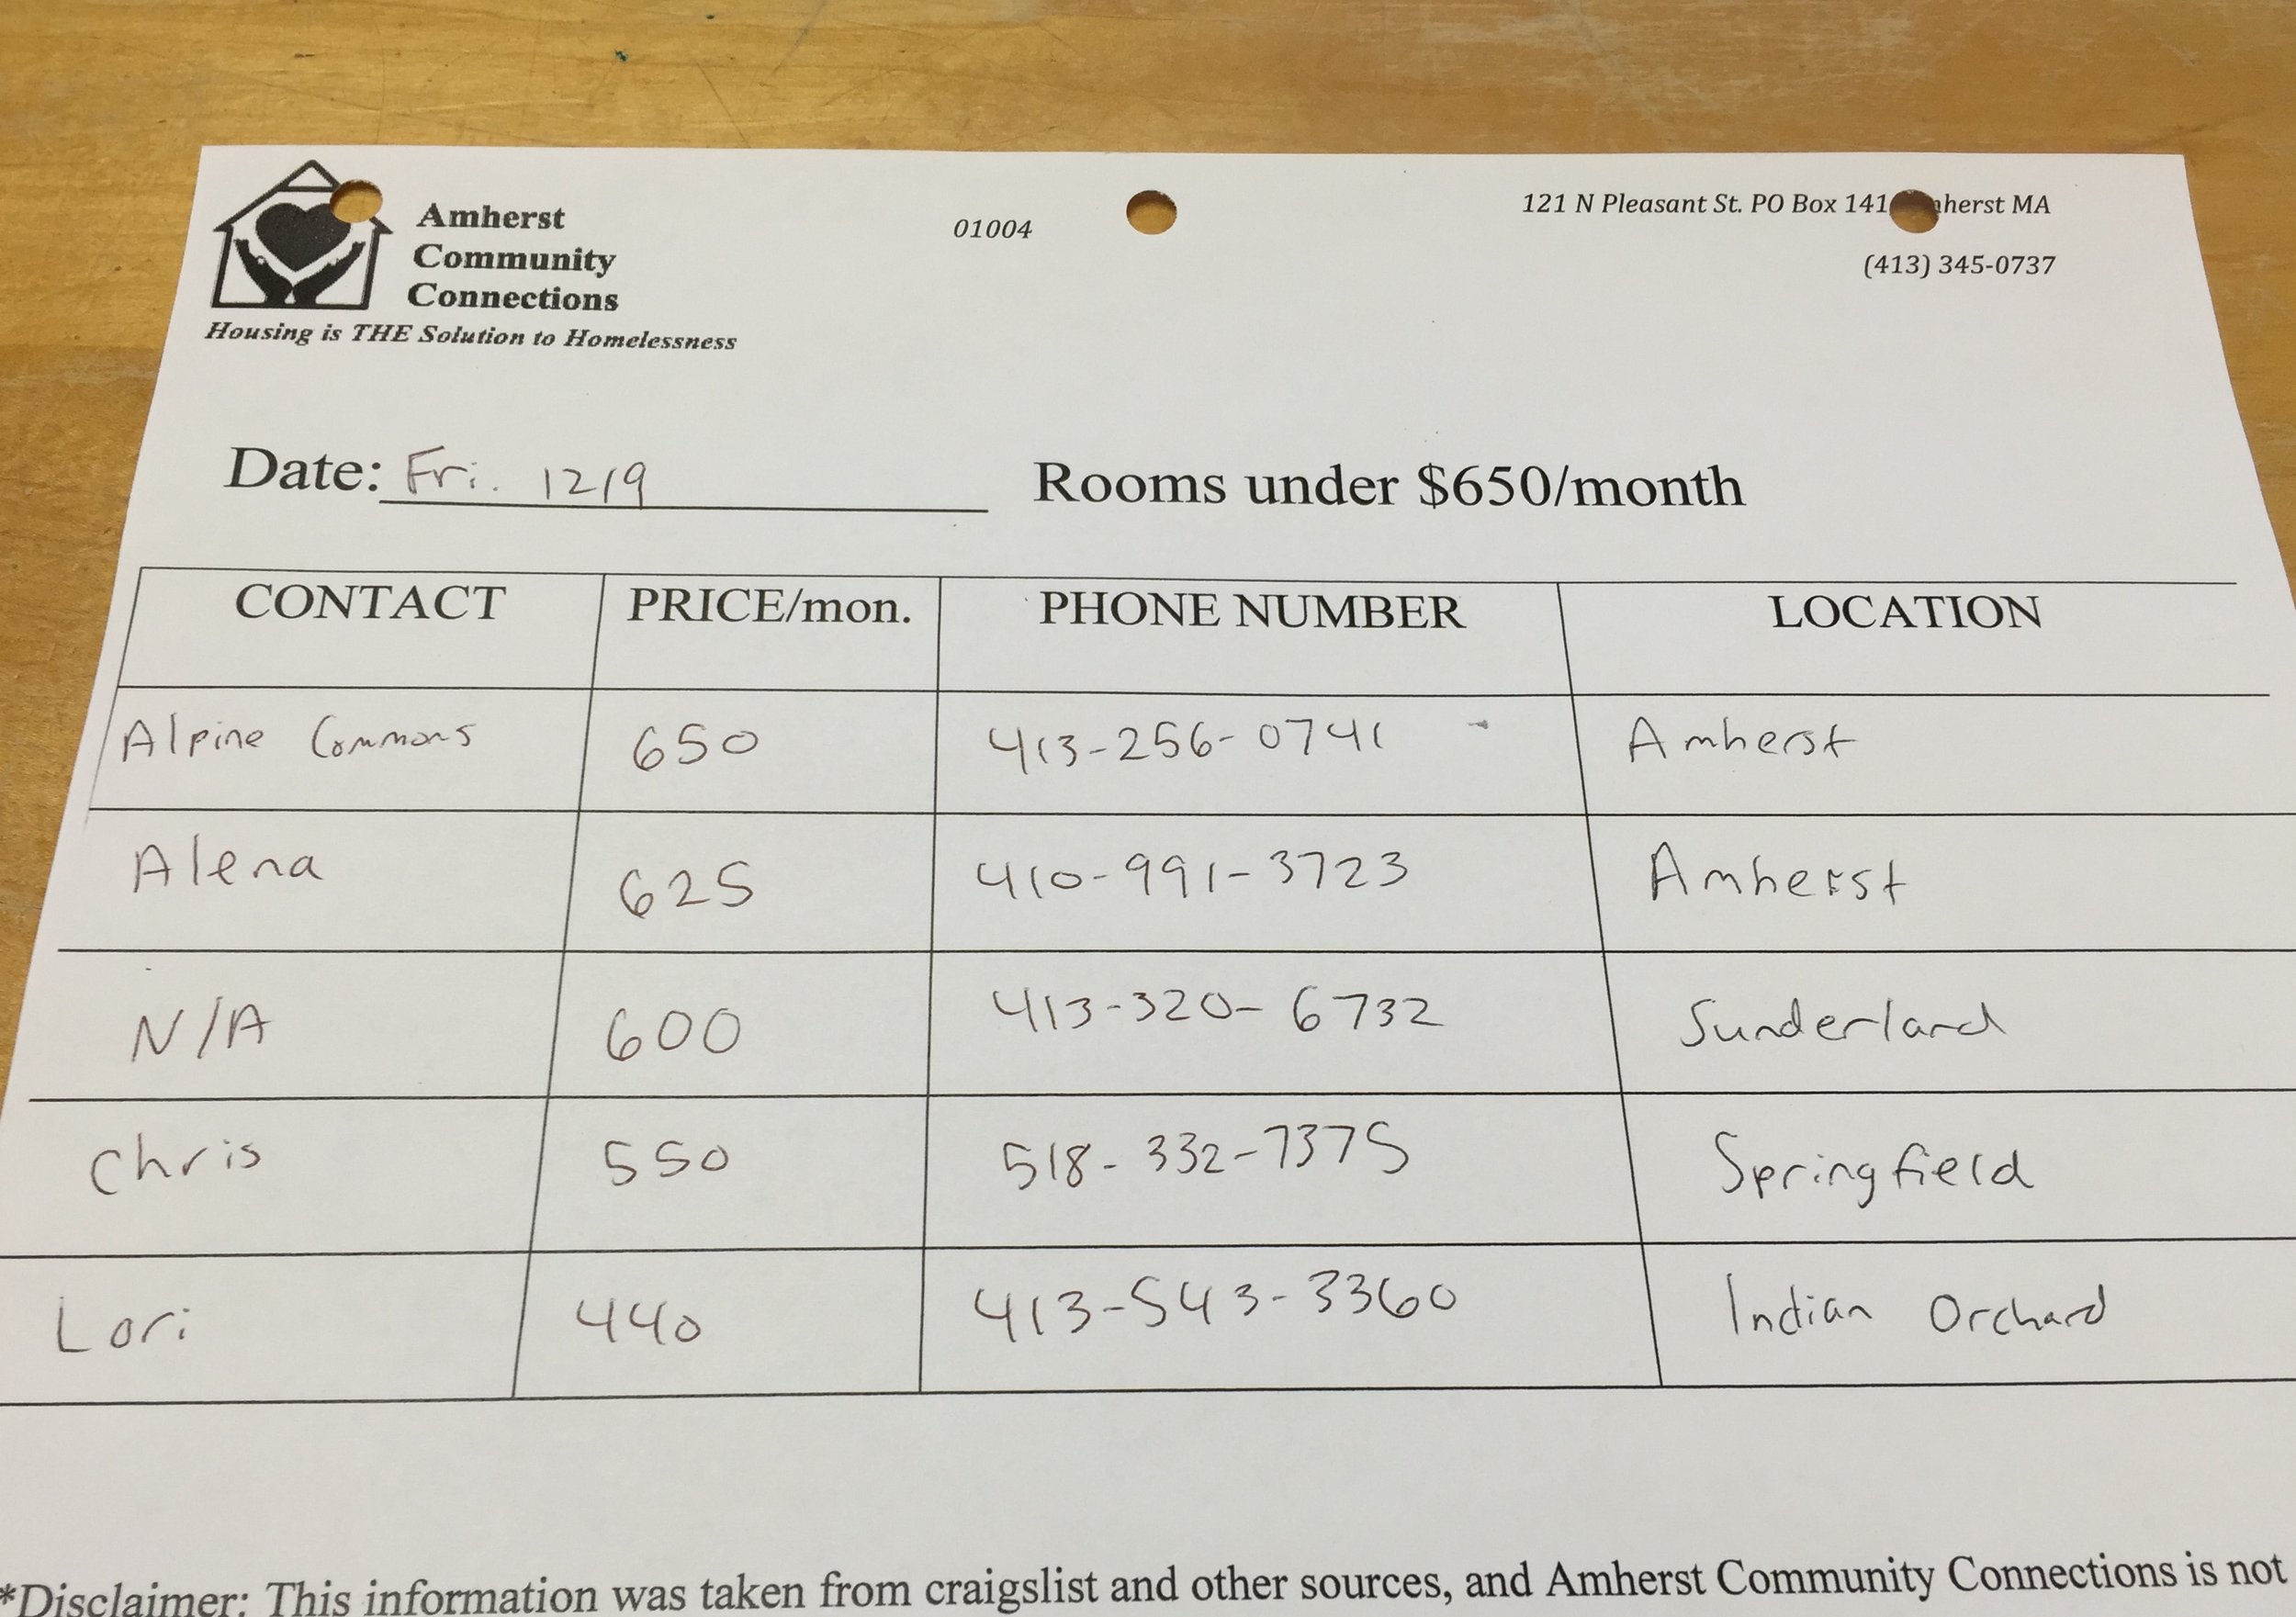 Amherst
Community
Connections
Housing is THE Solution to Homelessness
01004
121 N Pleasant St. PO Box 141 MA
(413) 345-0737
Date: Fri. 12/9 Rooms under $650/month
CONTACT PRICE/mon. PHONE NUMBER LOCATION
Alpine Commons 650 413-256-0741 Amherst
Alena 625 410-991-3723 Amherst
N/A 600 413-320-6732 Sunderland
Chris 550 518-332-7375 Springfield
Lori 440 413-543-3360 Indian Orchard
*Disclaimer: This information was taken from craigslist and other sources, and Amherst Community Connections is not